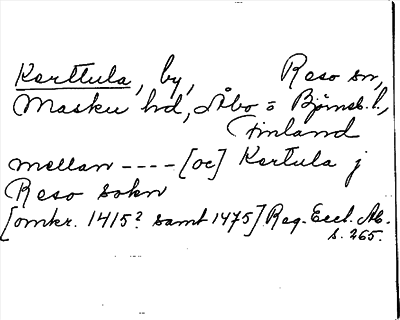 Karttula, by, Reso sn,
Masku hd, Åbo o Björneb. l.,
Finland
mellan ---- [oc] Kartula j
Reso sokn
[omkr. 1415? samt 1475] Reg. Eccl. Ab.
s. 265.